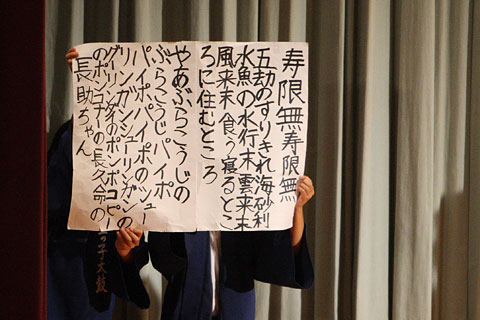 寿限無寿限無
五劫のすりきれ海砂利
水魚の水行末雲来末
風来末食う寝るとこ
ろに住むところ
やあぶらこうじの
ぶらこうじパイポ
パイポパイポのシュー
リンガンシューリンガンの
グリンダイのポンポコピー
のポンコナーの長久命の
長助ちゃん